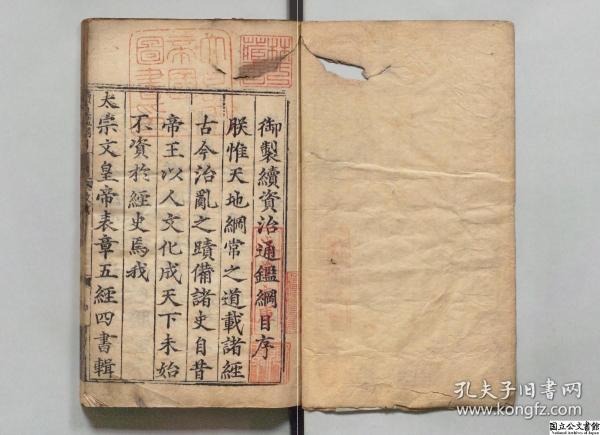 御製續資治通鑑綱目序
朕惟天地綱常之道載諸經
古今治亂之蹟備諸史自昔
帝王以人文化成天下未始
不資於經史焉我
太宗文皇帝表章五經四書輯
孔夫子旧书网
www.kongfz.com
国立公文書館
National Archives of Japan